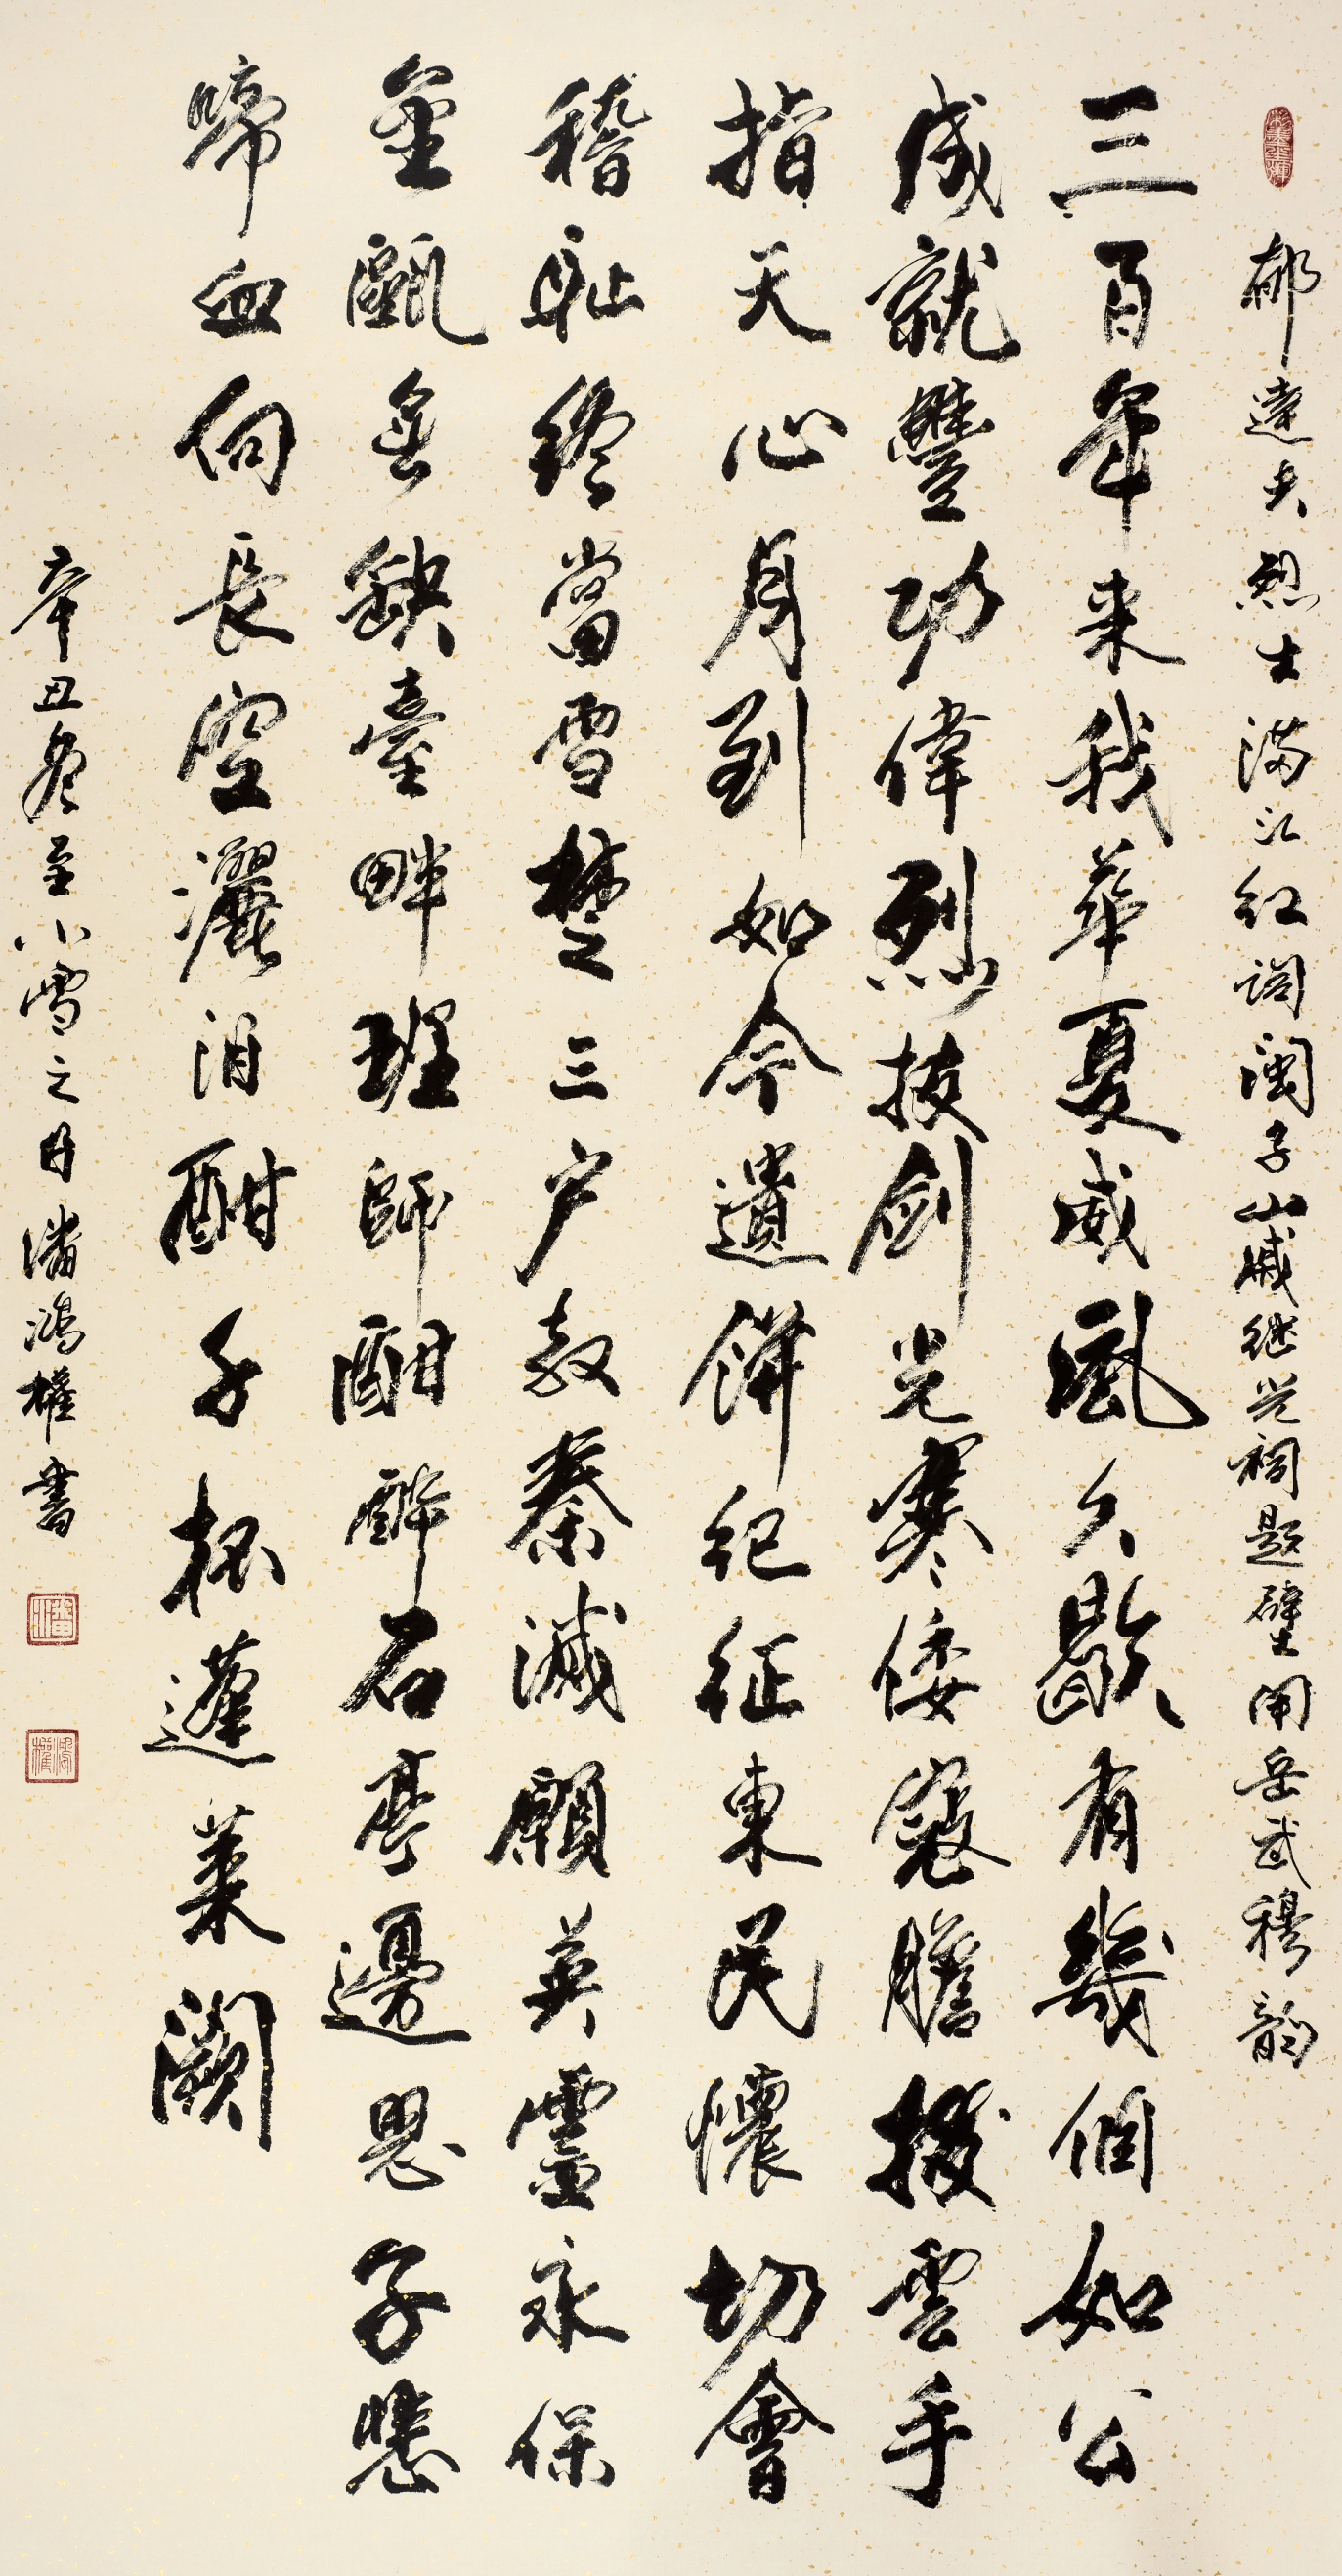 郁達夫烈士满江红词閩于山戚继光祠題壁用岳武穆韵
三百年来我華夏威風久歇有幾個如公
成就豐功偉烈拔劍光寒倭寇膽撥雲手
指天心月到如今遺餅紀征東民懷切會
稽恥終當雪楚三户教秦滅願英靈永保
金甌無缺臺畔班師酣醉石亭邊思子悲
啼血向長空灑泪酣千杯蓬萊闕
辛丑冬至小雪之日潘鴻權書